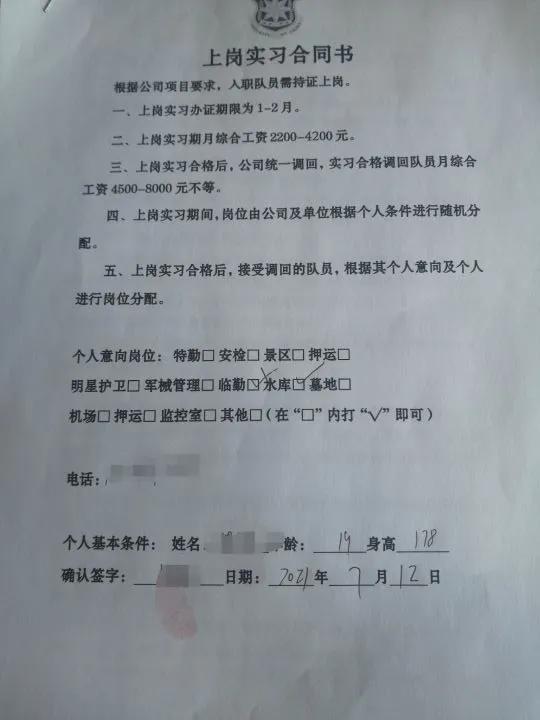 上岗实习合同书
根据公司项目要求，入职队员需持证上岗。
一、上岗实习办证期限为1-2月。
二、上岗实习期月综合工资2200-4200元。
三、上岗实习合格后，公司统一调回，实习合格调回队员月综合
工资4500-8000元不等。
四、上岗实习期间，岗位由公司及单位根据个人条件进行随机分
配。
五、上岗实习合格后，接受调回的队员，根据其个人意向及个人
进行岗位分配。
个人意向岗位：特勤□ 安检□ 景区□ 押运□
明星护卫□ 军械管理□ 临勤☑ 水库☑ 墓地□
机场□ 押运□ 监控室□ 其他□（在“□”内打“√”即可）
电话：
个人基本条件： 姓名 龄：19 身高 178
确认签字： 日期：2021年7月12日